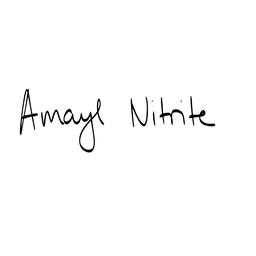 Amayl Nitrite